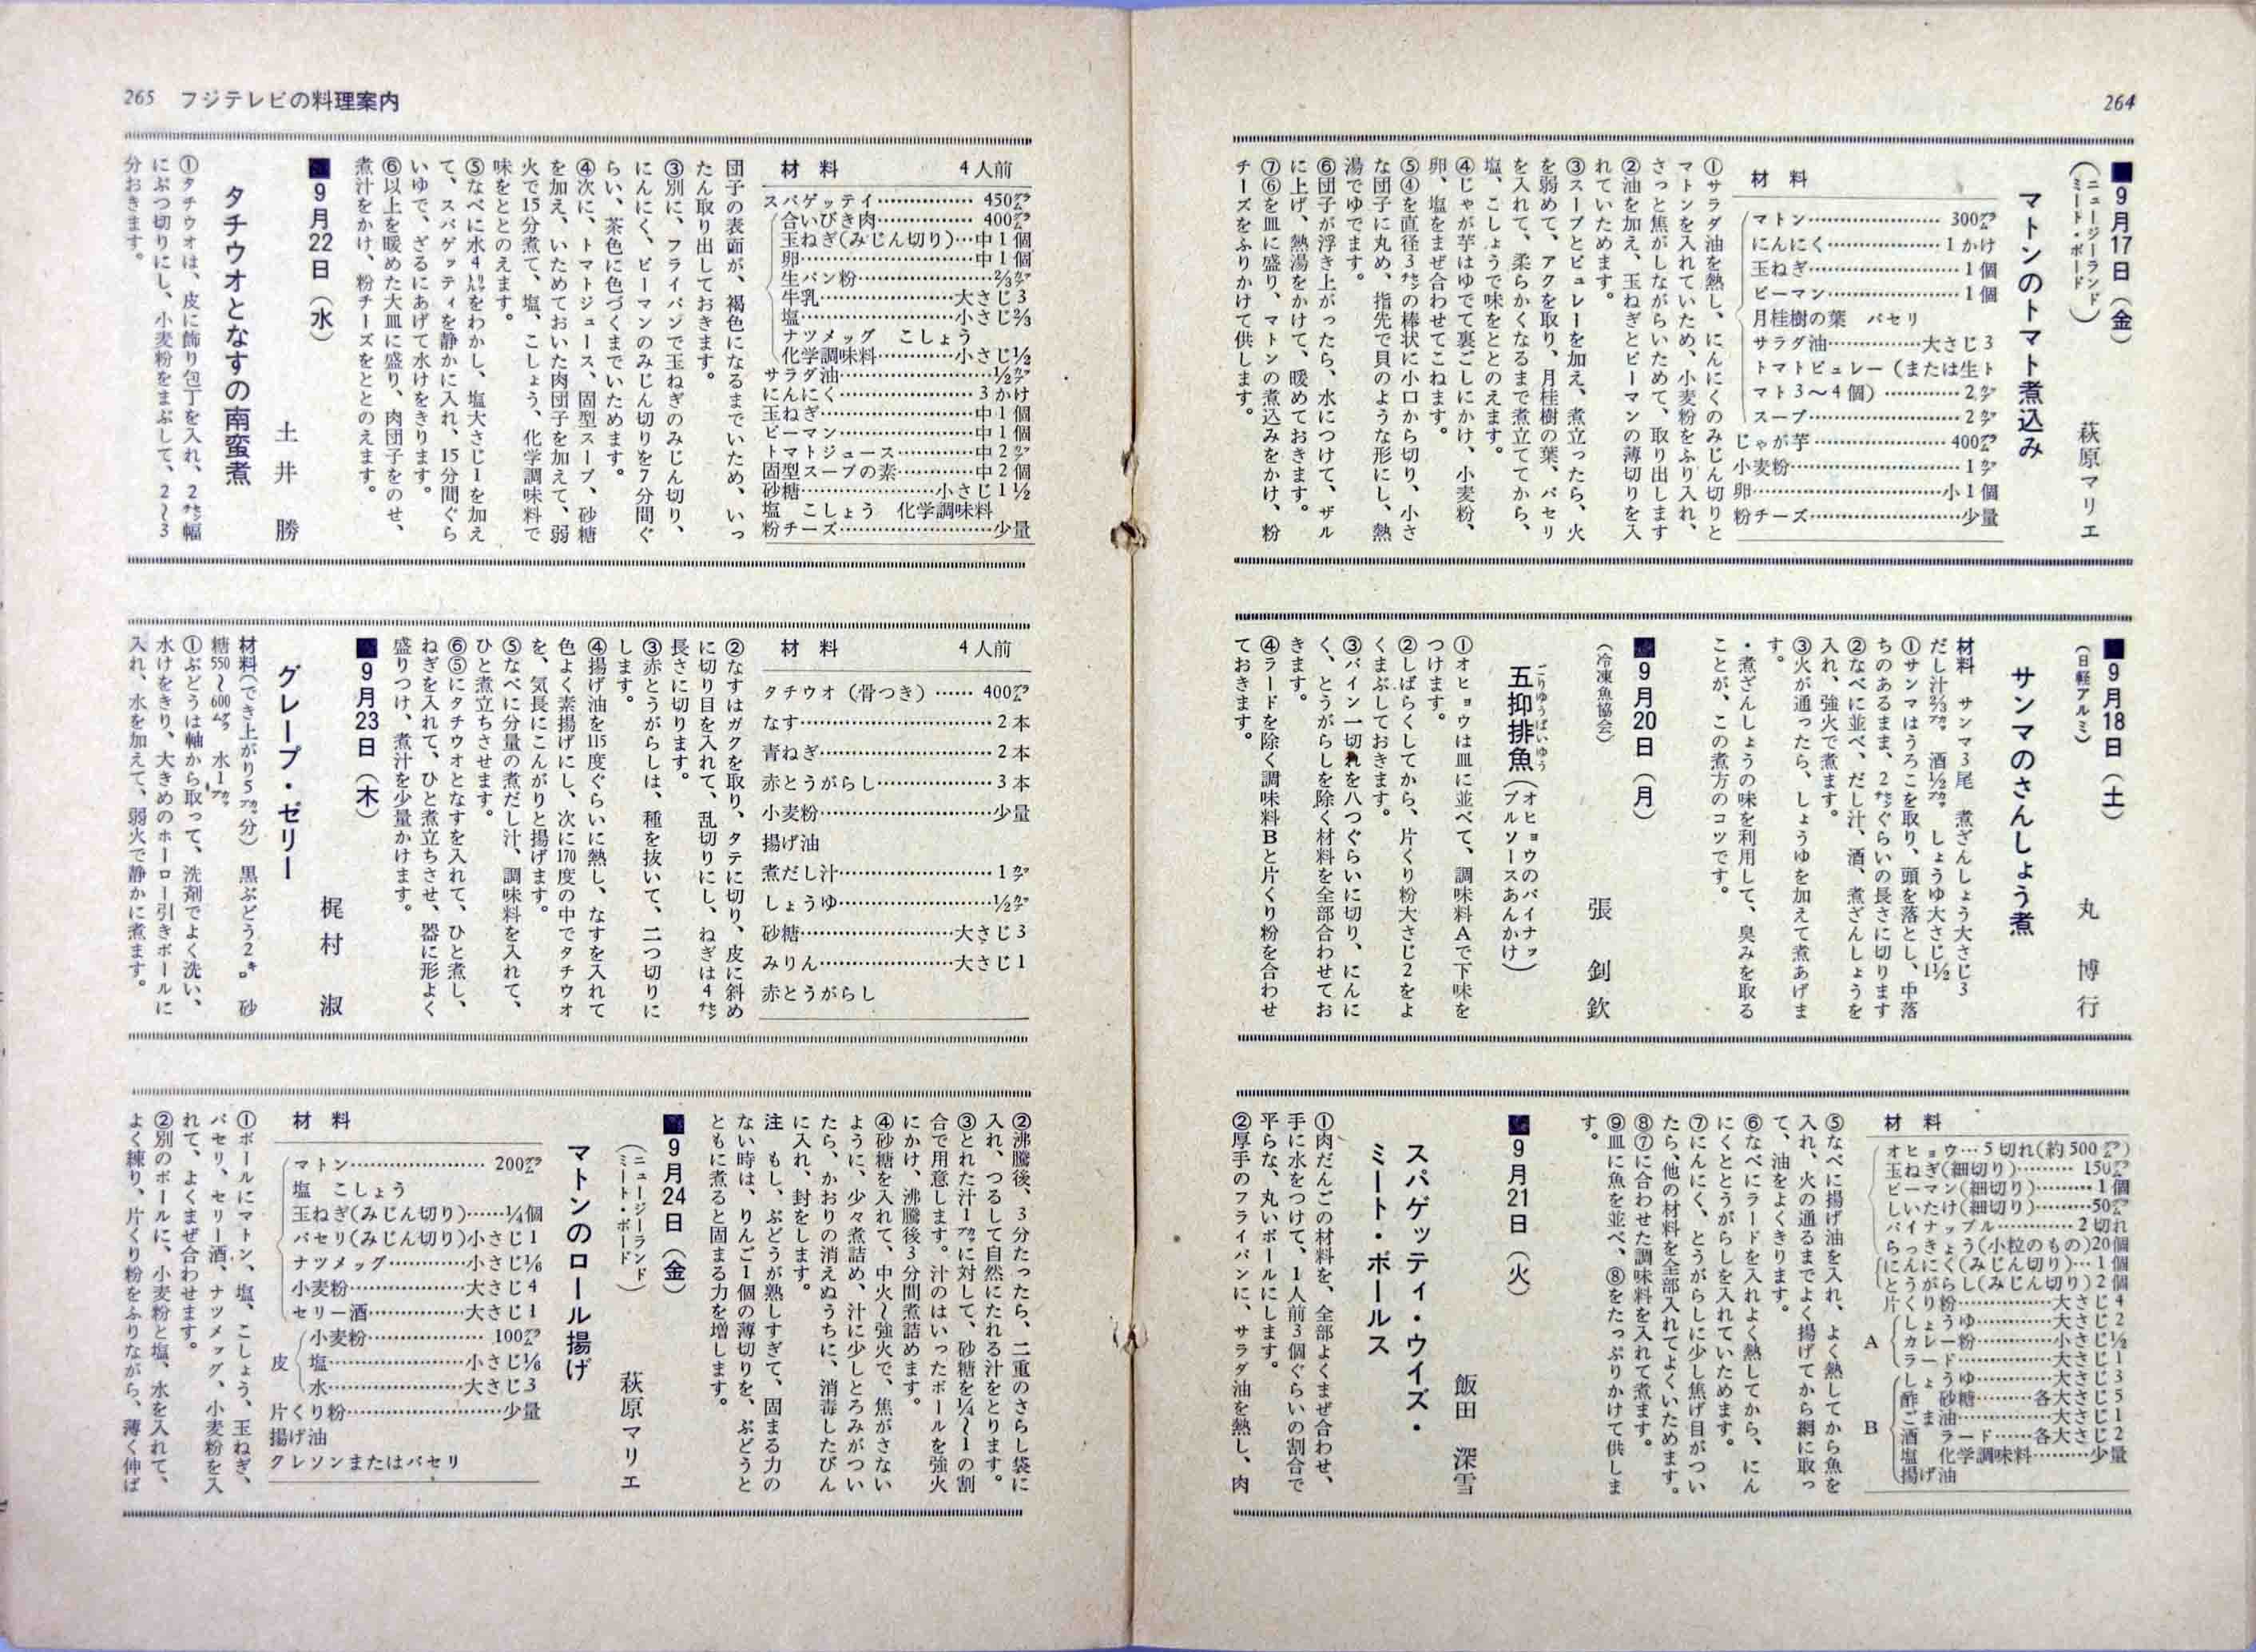 264
■9月17日（金）
（ニュージーランド
ミート・ボード）
萩原マリエ
マトンのトマト煮込み
材料
マトン……300㌘
にんにく……1かけ
玉ねぎ……1個
ピーマン……1個
月桂樹の葉　パセリ
サラダ油……大さじ3
トマトピュレー（または生ト
マト3〜4個）……2㌍
スープ……2㌍
じゃが芋……400㌘
小麦粉……1㌍
卵……小1個
粉チーズ……少量
①サラダ油を熱し、にんにくのみじん切りと
マトンを入れていため、小麦粉をふり入れ、
さっと焦がしながらいためて、取り出します
②油を加え、玉ねぎとピーマンの薄切りを入
れていためます。
③スープとピュレーを加え、煮立ったら、火
を弱めて、アクを取り、月桂樹の葉、パセリ
を入れて、柔らかくなるまで煮立ててから、
塩、こしょうで味をととのえます。
④じゃが芋はゆでて裏ごしにかけ、小麦粉、
卵、塩をまぜ合わせてこねます。
⑤④を直径3㌢の棒状に小口から切り、小さ
な団子に丸め、指先で貝のような形にし、熱
湯でゆでます。
⑥団子が浮き上がったら、水につけて、ザル
に上げ、熱湯をかけて、暖めておきます。
⑦⑥を皿に盛り、マトンの煮込みをかけ、粉
チーズをふりかけて供します。
■9月18日（土）
（日軽アルミ）
丸　博行
サンマのさんしょう煮
材料　サンマ3尾　煮ざんしょう大さじ3
だし汁⅔㌍　酒½㌍　しょうゆ大さじ1½
①サンマはうろこを取り、頭を落とし、中落
ちのあるまま、2㌢ぐらいの長さに切ります
②なべに並べ、だし汁、酒、煮ざんしょうを
入れ、強火で煮ます。
③火が通ったら、しょうゆを加えて煮あげま
す。
・煮ざんしょうの味を利用して、臭みを取る
ことが、この煮方のコツです。
■9月20日（月）
（冷凍魚協会）
張　釗欽
五抑排魚（オヒョウのパイナッ
プルソースあんかけ）
ごりゆうぱいゆう
①オヒョウは皿に並べて、調味料Aで下味を
つけます。
②しばらくしてから、片くり粉大さじ2をよ
くまぶしておきます。
③パイン一切れを八つぐらいに切り、にんに
く、とうがらしを除く材料を全部合わせてお
きます。
④ラードを除く調味料Bと片くり粉を合わせ
ておきます。
材料
オヒョウ…5切れ（約500㌘）
玉ねぎ（細切り）……150㌘
ピーマン（細切り）……1個
しいたけ（細切り）……50㌘
パイナップル……2切れ
らっきょう（小粒のもの）20個
にんにく（みじん切り）…1個
とうがらし（みじん切り）2個
片くり粉……大さじ4
A
しょうゆ……大さじ2
カレー粉……小さじ½
ラード……大さじ1
B
しょうゆ……大さじ3
酢　砂糖……各大さじ5
ごま油……大さじ1
酒　ラード……各大さじ2
塩　化学調味料……少量
揚げ油
⑤なべに揚げ油を入れ、よく熱してから魚を
入れ、火の通るまでよく揚げてから網に取っ
て、油をよくきります。
⑥なべにラードを入れよく熱してから、にん
にくとうがらしを入れていためます。
⑦にんにく、とうがらしに少し焦げ目がつい
たら、他の材料を全部入れてよくいためます。
⑧⑦に合わせた調味料を入れて煮ます。
⑨皿に魚を並べ、⑧をたっぷりかけて供しま
す。
■9月21日（火）
飯田　深雪
スパゲッティ・ウイズ・
ミート・ボールス
①肉だんごの材料を、全部よくまぜ合わせ、
手に水をつけて、1人前3個ぐらいの割合で
平らな、丸いボールにします。
②厚手のフライパンに、サラダ油を熱し、肉
265　フジテレビの料理案内
材料　4人前
スパゲッティ……450㌘
合いびき肉……400㌘
玉ねぎ（みじん切り）…中1個
卵……中1個
生パン粉……⅔㌍
牛乳……大さじ3
塩……小さじ⅔
ナツメッグ　こしょう
化学調味料……小さじ½
サラダ油……½㌍
にんにく……3かけ
玉ねぎ……中1個
ピーマン……中1個
トマトジュース……中2㌍
固型スープの素……中2個
砂糖……小さじ1½
塩　こしょう　化学調味料
粉チーズ……少量
団子の表面が、褐色になるまでいため、いっ
たん取り出しておきます。
③別に、フライパンで玉ねぎのみじん切り、
にんにく、ピーマンのみじん切りを7分間ぐ
らい、茶色に色づくまでいためます。
④次に、トマトジュース、固型スープ、砂糖
を加え、いためておいた肉団子を加えて、弱
火で15分煮て、塩、こしょう、化学調味料で
味をととのえます。
⑤なべに水4㍑をわかし、塩大さじ1を加え
て、スパゲッティを静かに入れ、15分間ぐら
いゆで、ざるにあげて水けをきります。
⑥以上を暖めた大皿に盛り、肉団子をのせ、
煮汁をかけ、粉チーズをととのえます。
■9月22日（水）
土井　勝
タチウオとなすの南蛮煮
①タチウオは、皮に飾り包丁を入れ、2㌢幅
にぶつ切りにし、小麦粉をまぶして、2〜3
分おきます。
材料　4人前
タチウオ（骨つき）……400㌘
なす……2本
青ねぎ……2本
赤とうがらし……3本
小麦粉……少量
揚げ油
煮だし汁……1㌍
しょうゆ……½㌍
砂糖……大さじ3
みりん……大さじ1
赤とうがらし
②なすはガクを取り、タテに切り、皮に斜め
に切り目を入れて、乱切りにし、ねぎは4㌢
長さに切ります。
③赤とうがらしは、種を抜いて、二つ切りに
します。
④揚げ油を115度ぐらいに熱し、なすを入れて
色よく素揚げにし、次に170度の中でタチウオ
を、気長にこんがりと揚げます。
⑤なべに分量の煮だし汁、調味料を入れて、
ひと煮立ちさせます。
⑥⑤にタチウオとなすを入れて、ひと煮し、
ねぎを入れて、ひと煮立ちさせ、器に形よく
盛りつけ、煮汁を少量かけます。
■9月23日（木）
梶村　淑
グレープ・ゼリー
材料（でき上がり5㌍分）　黒ぶどう2㌔。砂
糖550〜600㌘　水1㌍
①ぶどうは軸から取って、洗剤でよく洗い、
水けをきり、大きめのホーロー引きボールに
入れ、水を加えて、弱火で静かに煮ます。
②沸騰後、3分たったら、二重のさらし袋に
入れ、つるして自然にたれる汁をとります。
③とれた汁1㌍に対して、砂糖を¼〜1の割
合で用意します。汁のはいったボールを強火
にかけ、沸騰後3分間煮詰めます。
④砂糖を入れて、中火〜強火で、焦がさない
ように、少々煮詰め、汁に少しとろみがつい
たら、かおりの消えぬうちに、消毒したびん
に入れ、封をします。
注　もし、ぶどうが熟しすぎて、固まる力の
ない時は、りんご1個の薄切りを、ぶどうと
ともに煮ると固まる力を増します。
■9月24日（金）
（ニュージーランド
ミート・ボード）
萩原マリエ
マトンのロール揚げ
材料
マトン……200㌘
塩　こしょう
玉ねぎ（みじん切り）……¼個
パセリ（みじん切り）小さじ1
ナツメッグ……小さじ⅙
小麦粉……大さじ4
セリー酒……大さじ1
皮
小麦粉……100㌘
塩……小さじ⅙
水……大さじ3
片くり粉……少量
揚げ油
クレソンまたはパセリ
①ボールにマトン、塩、こしょう、玉ねぎ、
パセリ、セリー酒、ナツメッグ、小麦粉を入
れて、よくまぜ合わせます。
②別のボールに、小麦粉と塩、水を入れて、
よく練り、片くり粉をふりながら、薄く伸ば